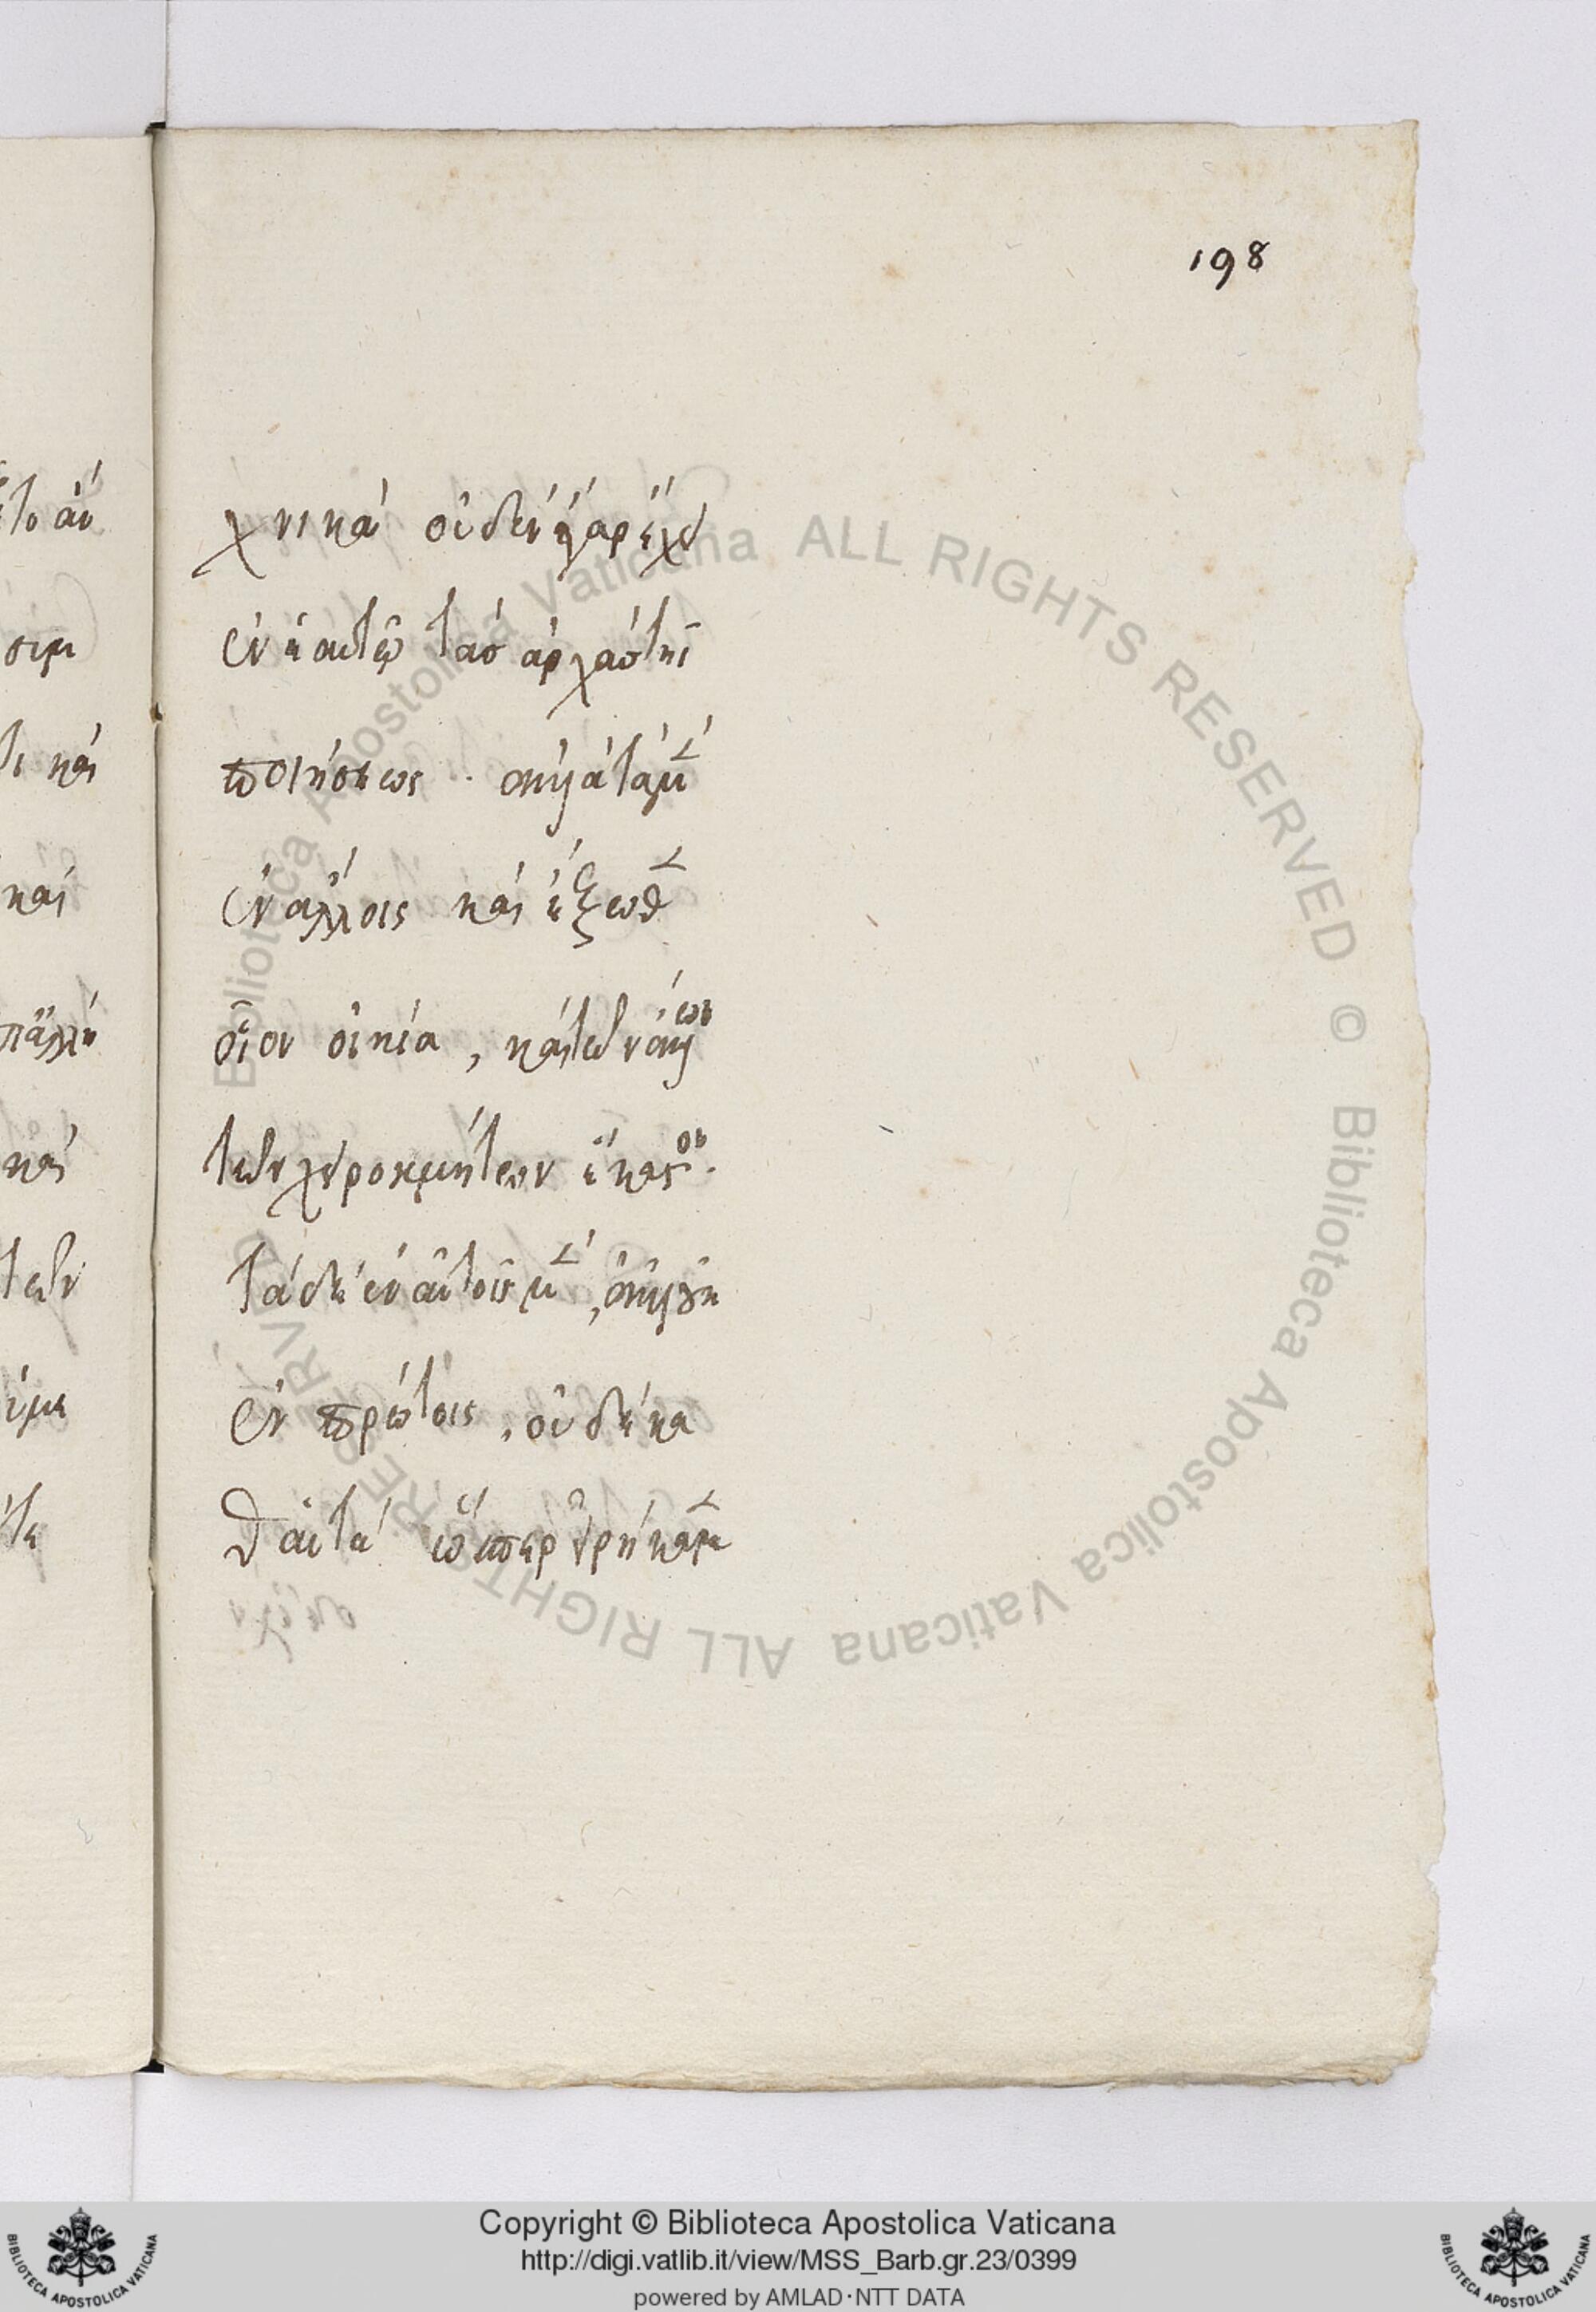 198
χνικά οὐδέν γάρ ἔχει
ἐν ἑαυτῷ τάσ ἀρχάσ τῆς
ποιήσεως · ἀλλὰ τά μέν
ἐν ἄλλοις καί ἔξωθεν
οἷον οἰκία, καί τῶν ἄλλων
τῶν χειροκμήτων ἕκαστον.
τά δέ ἐν αὐτοῖς μέν, ἀλλ
ἐν πρώτοις, οὐδέ κα
θ αὑτά ὥσπερ εἰρήκαμεν
Biblioteca Apostolica Vaticana ALL RIGHTS RESERVED © Biblioteca Apostolica Vaticana ALL RIGHTS RESERVED
Copyright © Biblioteca Apostolica Vaticana
http://digi.vatlib.it/view/MSS_Barb.gr.23/0399
powered by AMLAD·NTT DATA
BIBLIOTECA APOSTOLICA VATICANA
BIBLIOTECA APOSTOLICA VATICANA